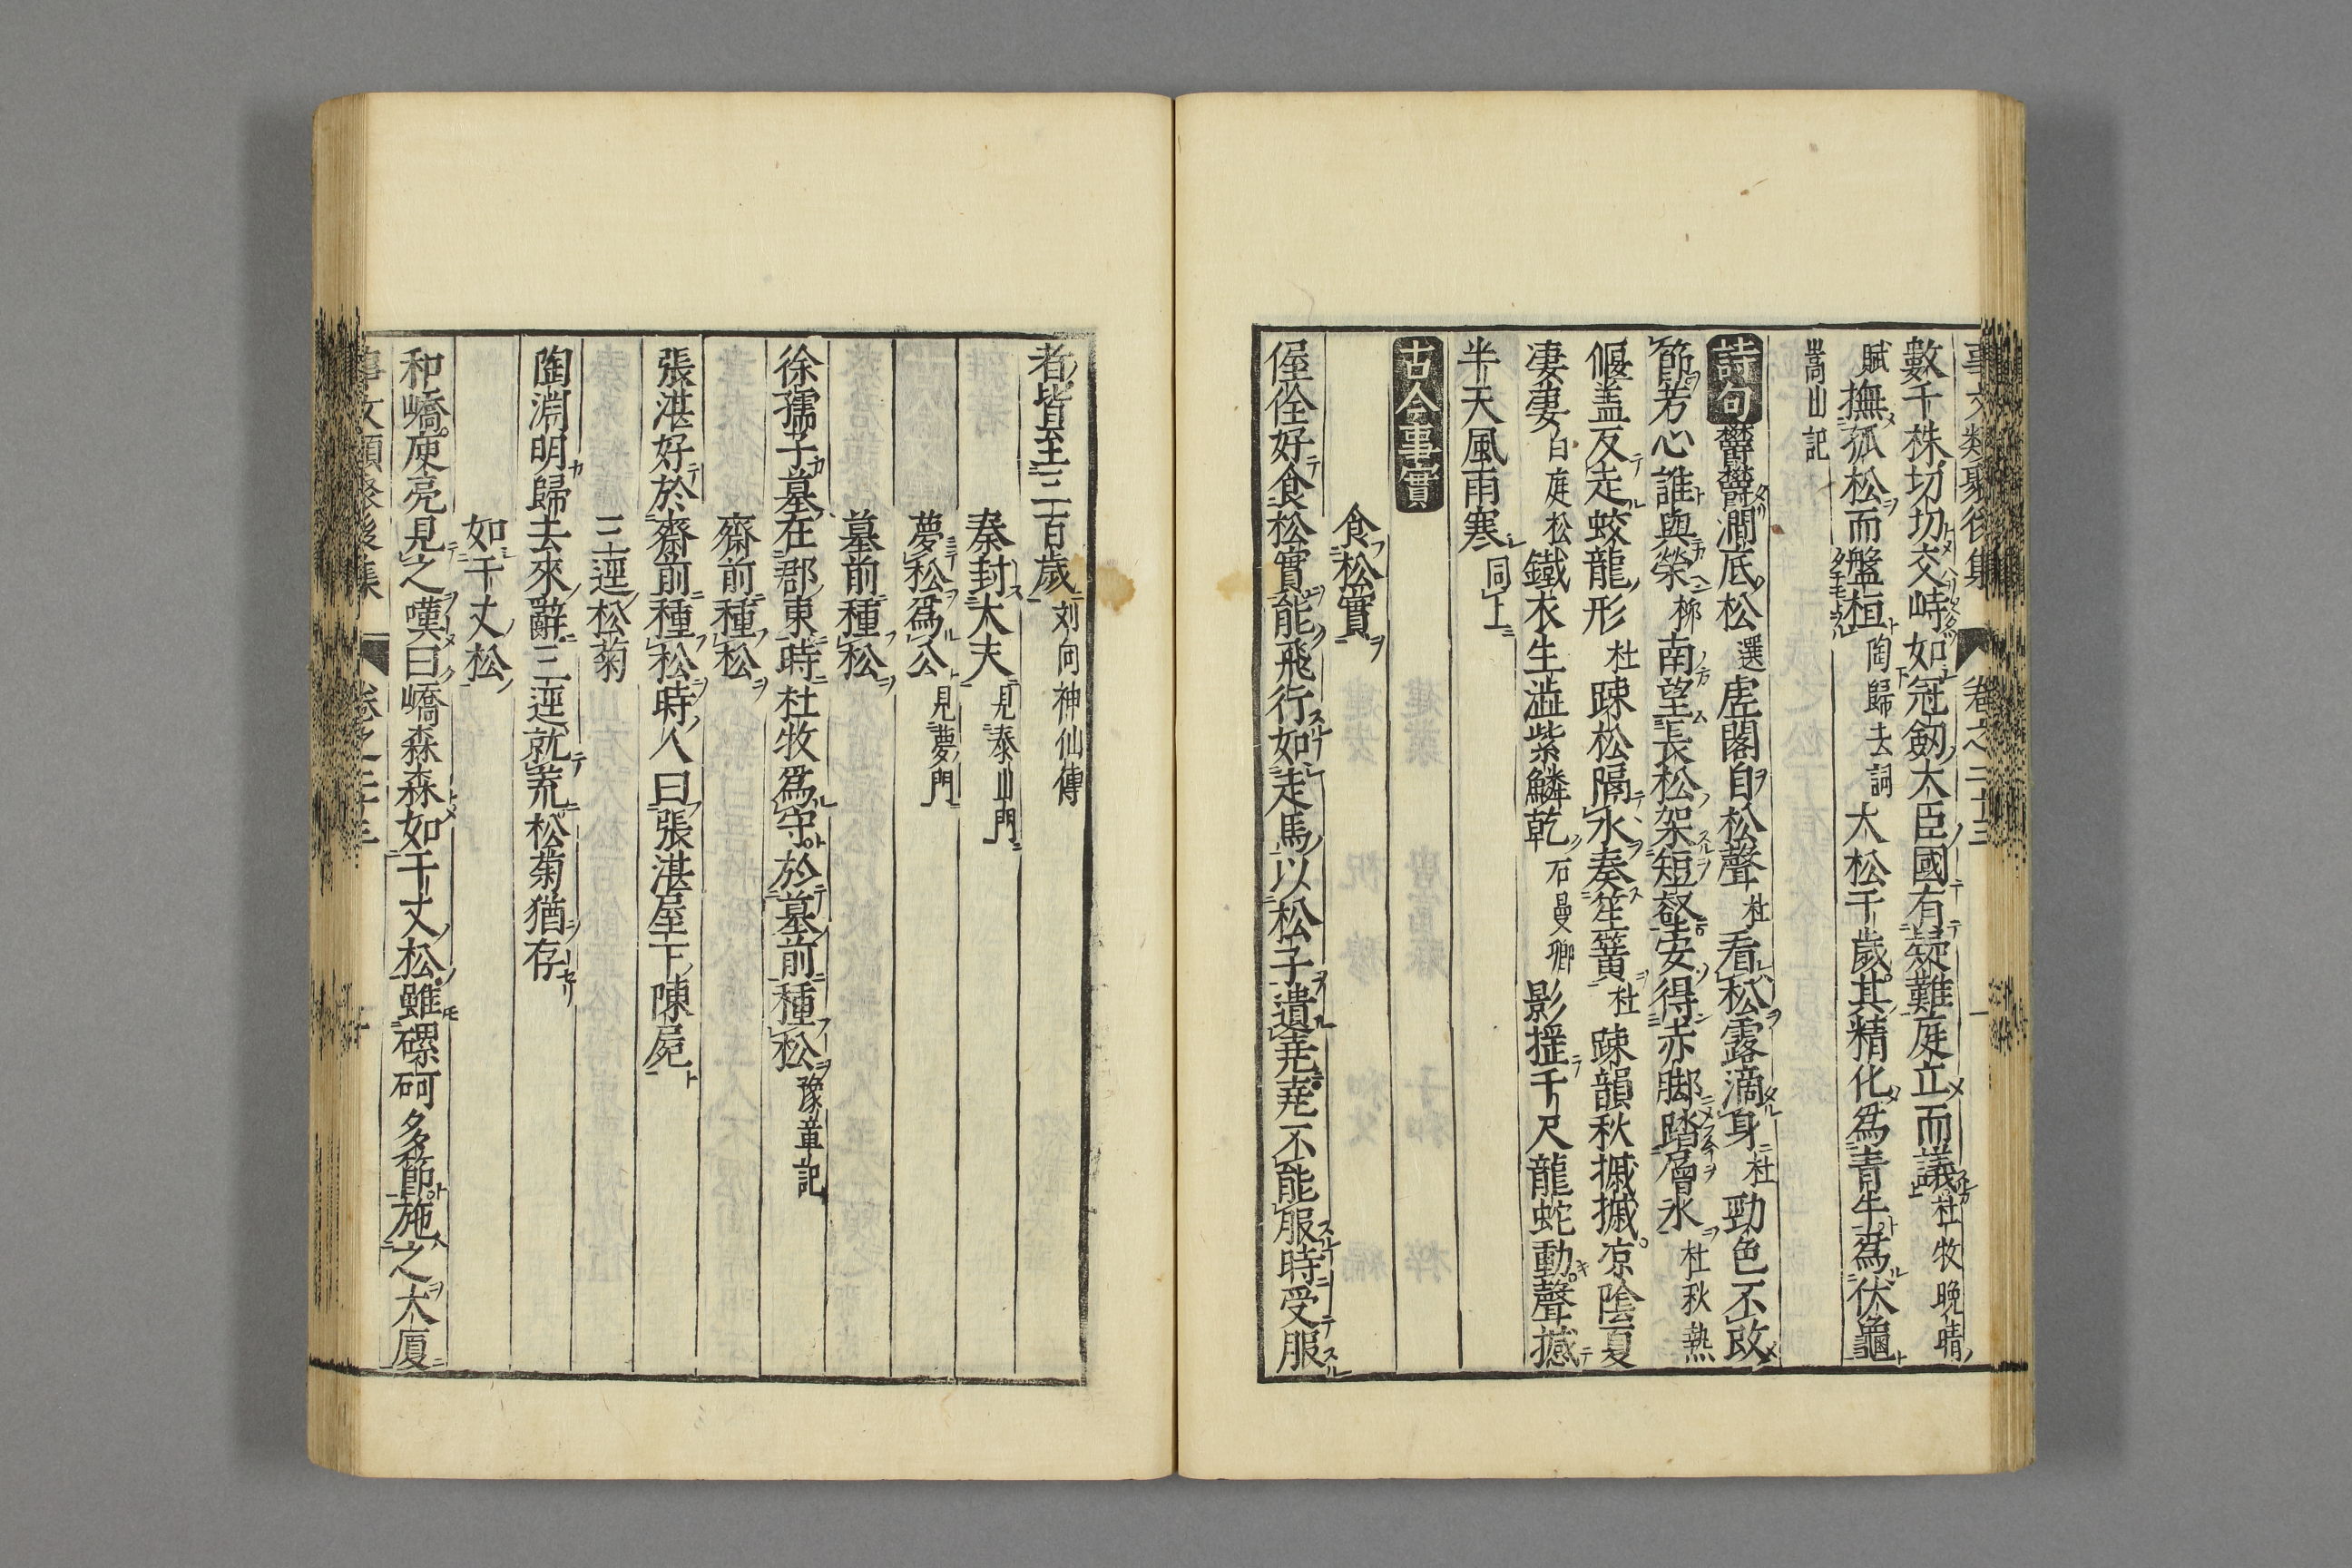 事文類聚後集 卷之二十三
數千株切切交峙如冠劔大臣國有疑難庭立而議杜牧晩晴
賦撫孤松而盤桓陶歸去詞大松千歲其精化爲青牛爲伏龜
嵩山記
詩句鬱鬱澗底松選虚閣自松聲杜看松露滴身杜勁色不改
節芳心誰與榮柳南望長松架短壑安得赤脚踏層氷杜秋熱
偃盖反走蛟龍形杜踈松隔水奏笙簧杜踈韻秋摵摵凉陰夏
凄凄白庭松鐵衣生澁紫鱗乾石曼卿影摇千尺龍蛇動聲撼
半天風雨寒同上
古今事實
食松實
偓佺好食松實能飛行如走馬以松子遺尭尭不能服時受服
者皆至三百歲刘向神仙傳
秦封大夫見泰山門
夢松爲公見夢門
墓前種松
徐孺子墓在郡東時杜牧爲守於墓前種松豫章記
齋前種松
張湛好於齋前種松時人曰張湛屋下陳屍
三逕松菊
陶淵明歸去來辭三逕就荒松菊猶存
如千丈松
和嶠庾亮見之嘆曰嶠森森如千丈松雖磥砢多節施之大厦
事文類聚後集 卷之二十三